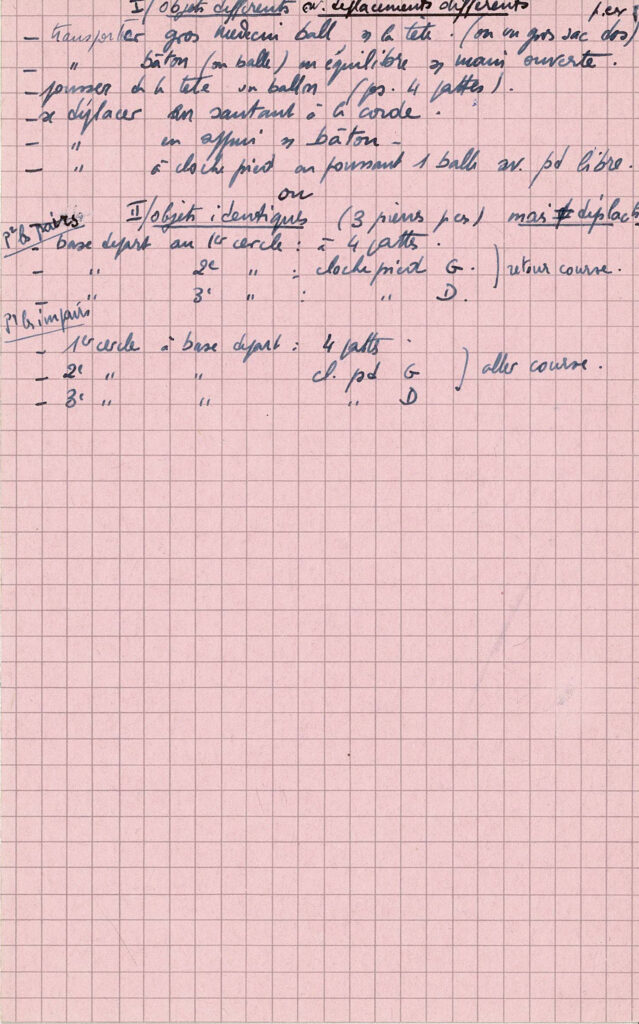 I/ objets différents av. déplacements différents p. ex :
– transporter gros médecin ball s la tête . (ou un gros sac dos)
– " bâton (ou balle) en équilibre s main ouverte .
– pousser de la tête un ballon (ps. 4 pattes) .
– se déplacer en sautant à la corde .
– " en appui s bâton –
– " à cloche pied en poussant 1 balle av. pd libre .
ou
pr les pairs II/ objets identiques (3 pierres p ex) mais ≠ déplacts
– base départ au 1er cercle : à 4 pattes .
– " 2e " : cloche pied G . ) retour course .
– " 3e " : " D .
pr les impairs
– 1er cercle à base départ : 4 pattes .
– 2e " " cl. pd G ) aller course .
– 3e " " " D